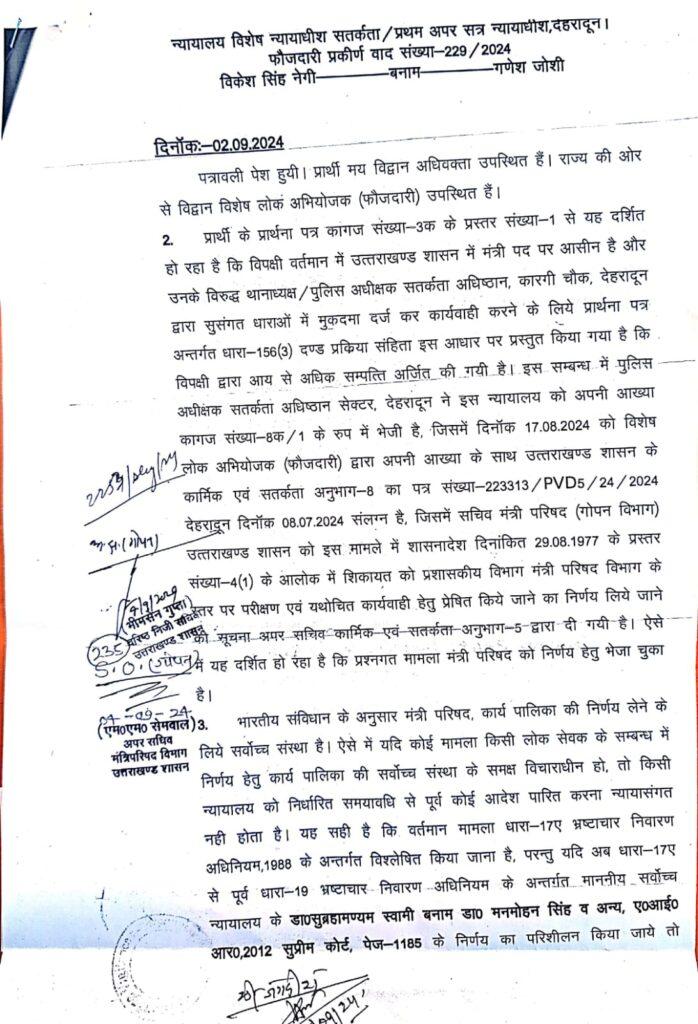 न्यायालय विशेष न्यायाधीश सतर्कता/प्रथम अपर सत्र न्यायाधीश,देहरादून।
फौजदारी प्रकीर्ण वाद संख्या-229/2024
विकेश सिंह नेगी-------बनाम-------गणेश जोशी
दिनाँक:-02.09.2024
पत्रावली पेश हुयी। प्रार्थी मय विद्वान अधिवक्ता उपस्थित हैं। राज्य की ओर
से विद्वान विशेष लोक अभियोजक (फौजदारी) उपस्थित हैं।
2. प्रार्थी के प्रार्थना पत्र कागज संख्या-3क के प्रस्तर संख्या-1 से यह दर्शित
हो रहा है कि विपक्षी वर्तमान में उत्तराखण्ड शासन में मंत्री पद पर आसीन है और
उनके विरुद्ध थानाध्यक्ष/पुलिस अधीक्षक सतर्कता अधिष्ठान, कारगी चौक, देहरादून
द्वारा सुसंगत धाराओं में मुकदमा दर्ज कर कार्यवाही करने के लिये प्रार्थना पत्र
अन्तर्गत धारा-156(3) दण्ड प्रकिया संहिता इस आधार पर प्रस्तुत किया गया है कि
विपक्षी द्वारा आय से अधिक सम्पत्ति अर्जित की गयी है। इस सम्बन्ध में पुलिस
अधीक्षक सतर्कता अधिष्ठान सेक्टर, देहरादून ने इस न्यायालय को अपनी आख्या
कागज संख्या-8क/1 के रुप में भेजी है, जिसमें दिनाँक 17.08.2024 को विशेष
लोक अभियोजक (फौजदारी) द्वारा अपनी आख्या के साथ उत्तराखण्ड शासन के
कार्मिक एवं सतर्कता अनुभाग-8 का पत्र संख्या-223313/PVD5/24/2024
देहरादून दिनाँक 08.07.2024 संलग्न है, जिसमें सचिव मंत्री परिषद (गोपन विभाग)
उत्तराखण्ड शासन को इस मामले में शासनादेश दिनांकित 29.08.1977 के प्रस्तर
संख्या-4(1) के आलोक में शिकायत को प्रशासकीय विभाग मंत्री परिषद विभाग के
स्तर पर परीक्षण एवं यथोचित कार्यवाही हेतु प्रेषित किये जाने का निर्णय लिये जाने
की सूचना अपर सचिव कार्मिक एवं सतर्कता अनुभाग-5 द्वारा दी गयी है। ऐसे
में यह दर्शित हो रहा है कि प्रश्नगत मामला मंत्री परिषद को निर्णय हेतु भेजा चुका
है।
(गोपन)
(भीमसेन गुप्ता)
वरिष्ठ निजी सचिव
उत्तराखण्ड शासन
235
S.O. (गोपन)
04-09-24
(एम0एम0 सेमवाल)
अपर सचिव
मंत्रिपरिषद विभाग
उत्तराखण्ड शासन
3. भारतीय संविधान के अनुसार मंत्री परिषद, कार्य पालिका की निर्णय लेने के
लिये सर्वोच्च संस्था है। ऐसे में यदि कोई मामला किसी लोक सेवक के सम्बन्ध में
निर्णय हेतु कार्य पालिका की सर्वोच्च संस्था के समक्ष विचाराधीन हो, तो किसी
न्यायालय को निर्धारित समयावधि से पूर्व कोई आदेश पारित करना न्यायासंगत
नही होता है। यह सही है कि वर्तमान मामला धारा-17ए भ्रष्टाचार निवारण
अधिनियम,1988 के अन्तर्गत विश्लेषित किया जाना है, परन्तु यदि अब धारा-17ए
से पूर्व धारा-19 भ्रष्टाचार निवारण अधिनियम के अन्तर्गत माननीय सर्वोच्च
न्यायालय के डा0सुब्रहामण्यम स्वामी बनाम डा0 मनमोहन सिंह व अन्य, ए0आई0
आर0,2012 सुप्रीम कोर्ट, पेज-1185 के निर्णय का परिशीलन किया जाये तो